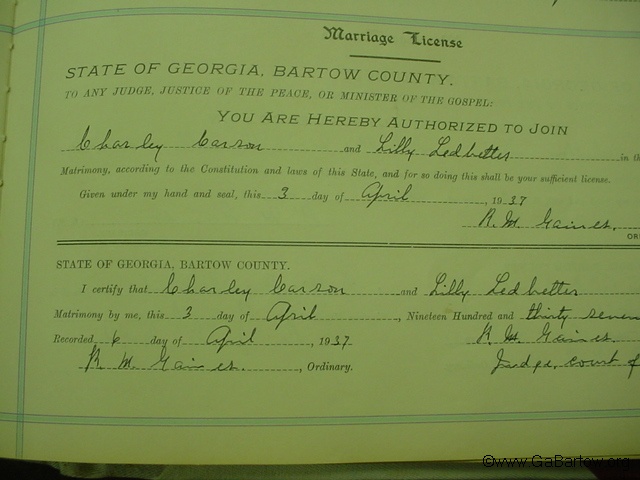 Marriage License
STATE OF GEORGIA, BARTOW COUNTY.
TO ANY JUDGE, JUSTICE OF THE PEACE, OR MINISTER OF THE GOSPEL:
YOU ARE HEREBY AUTHORIZED TO JOIN
Charley Carson and Lilly Ledbetter in th
Matrimony, according to the Constitution and laws of this State, and for so doing this shall be your sufficient license.
Given under my hand and seal, this 3 day of April, 1937
R. M. Gaines.
OR
STATE OF GEORGIA, BARTOW COUNTY.
I certify that Charley Carson and Lilly Ledbetter
Matrimony by me, this 3 day of April, Nineteen Hundred and thirty seven
Recorded 6 day of April, 1937 R. M. Gaines.
R. M. Gaines., Ordinary. Judge, court of
©www.GaBartow.org